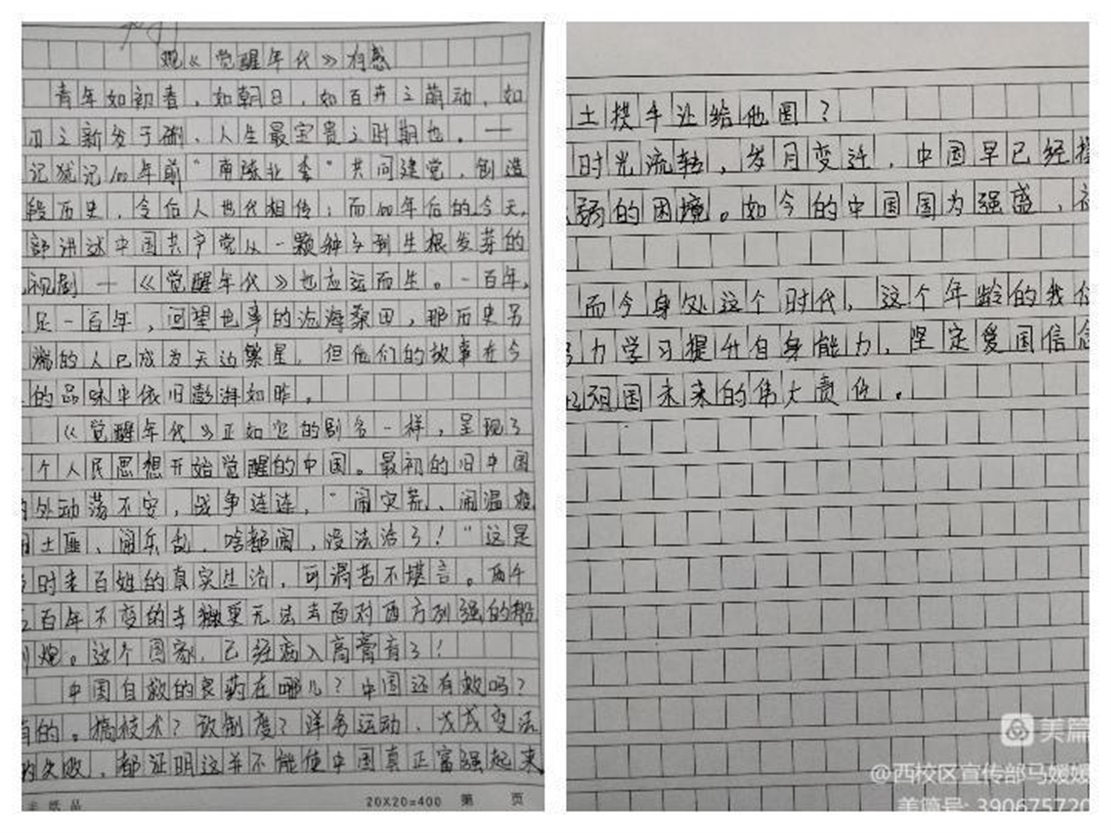 观《觉醒年代》有感
青年如初春，如朝日，如百卉之萌动，如
刃之新发于硎，人生最宝贵之时期也。一
记犹记100年前“南陈北李”共同建党，创造
段历史，令后人世代相传；而100年后的今天，
部讲述中国共产党从一颗种子到生根发芽的
视剧—《觉醒年代》也应运而生。一百年，
足一百年，回望世事的沧海桑田，那历史另
端的人已成为天边繁星，但他们的故事在今
的品味中依旧澎湃如昨。
《觉醒年代》正如它的剧名一样，呈现了
个人民思想开始觉醒的中国。最初的旧中国
外动荡不安，战争连连，“闹灾荒、闹温疫
土匪、闹兵乱，啥都闹，没法治了！“这是
时老百姓的真实生活，可谓苦不堪言。两千
百年不变的更无法去面对西方列强的船
炮。这个国家，已经病入高膏肓了！
中国自救的良药在哪儿？中国还有救吗？
有的。搞技术？改制度？洋务运动、戊戌变法
的失败，都证明这并不能使中国真正富强起来
20×20=400 第 页
土拱手让给他国？
时光流转，岁月变迁，中国早已经摆
弱的困境。如今的中国国为强盛，
而今身处这个时代，这个年龄的我们
努力学习提升自身能力，坚定爱国信念
祖国未来的伟大责任。
美篇
@西校区宣传部马媛媛
美篇号: 390675720